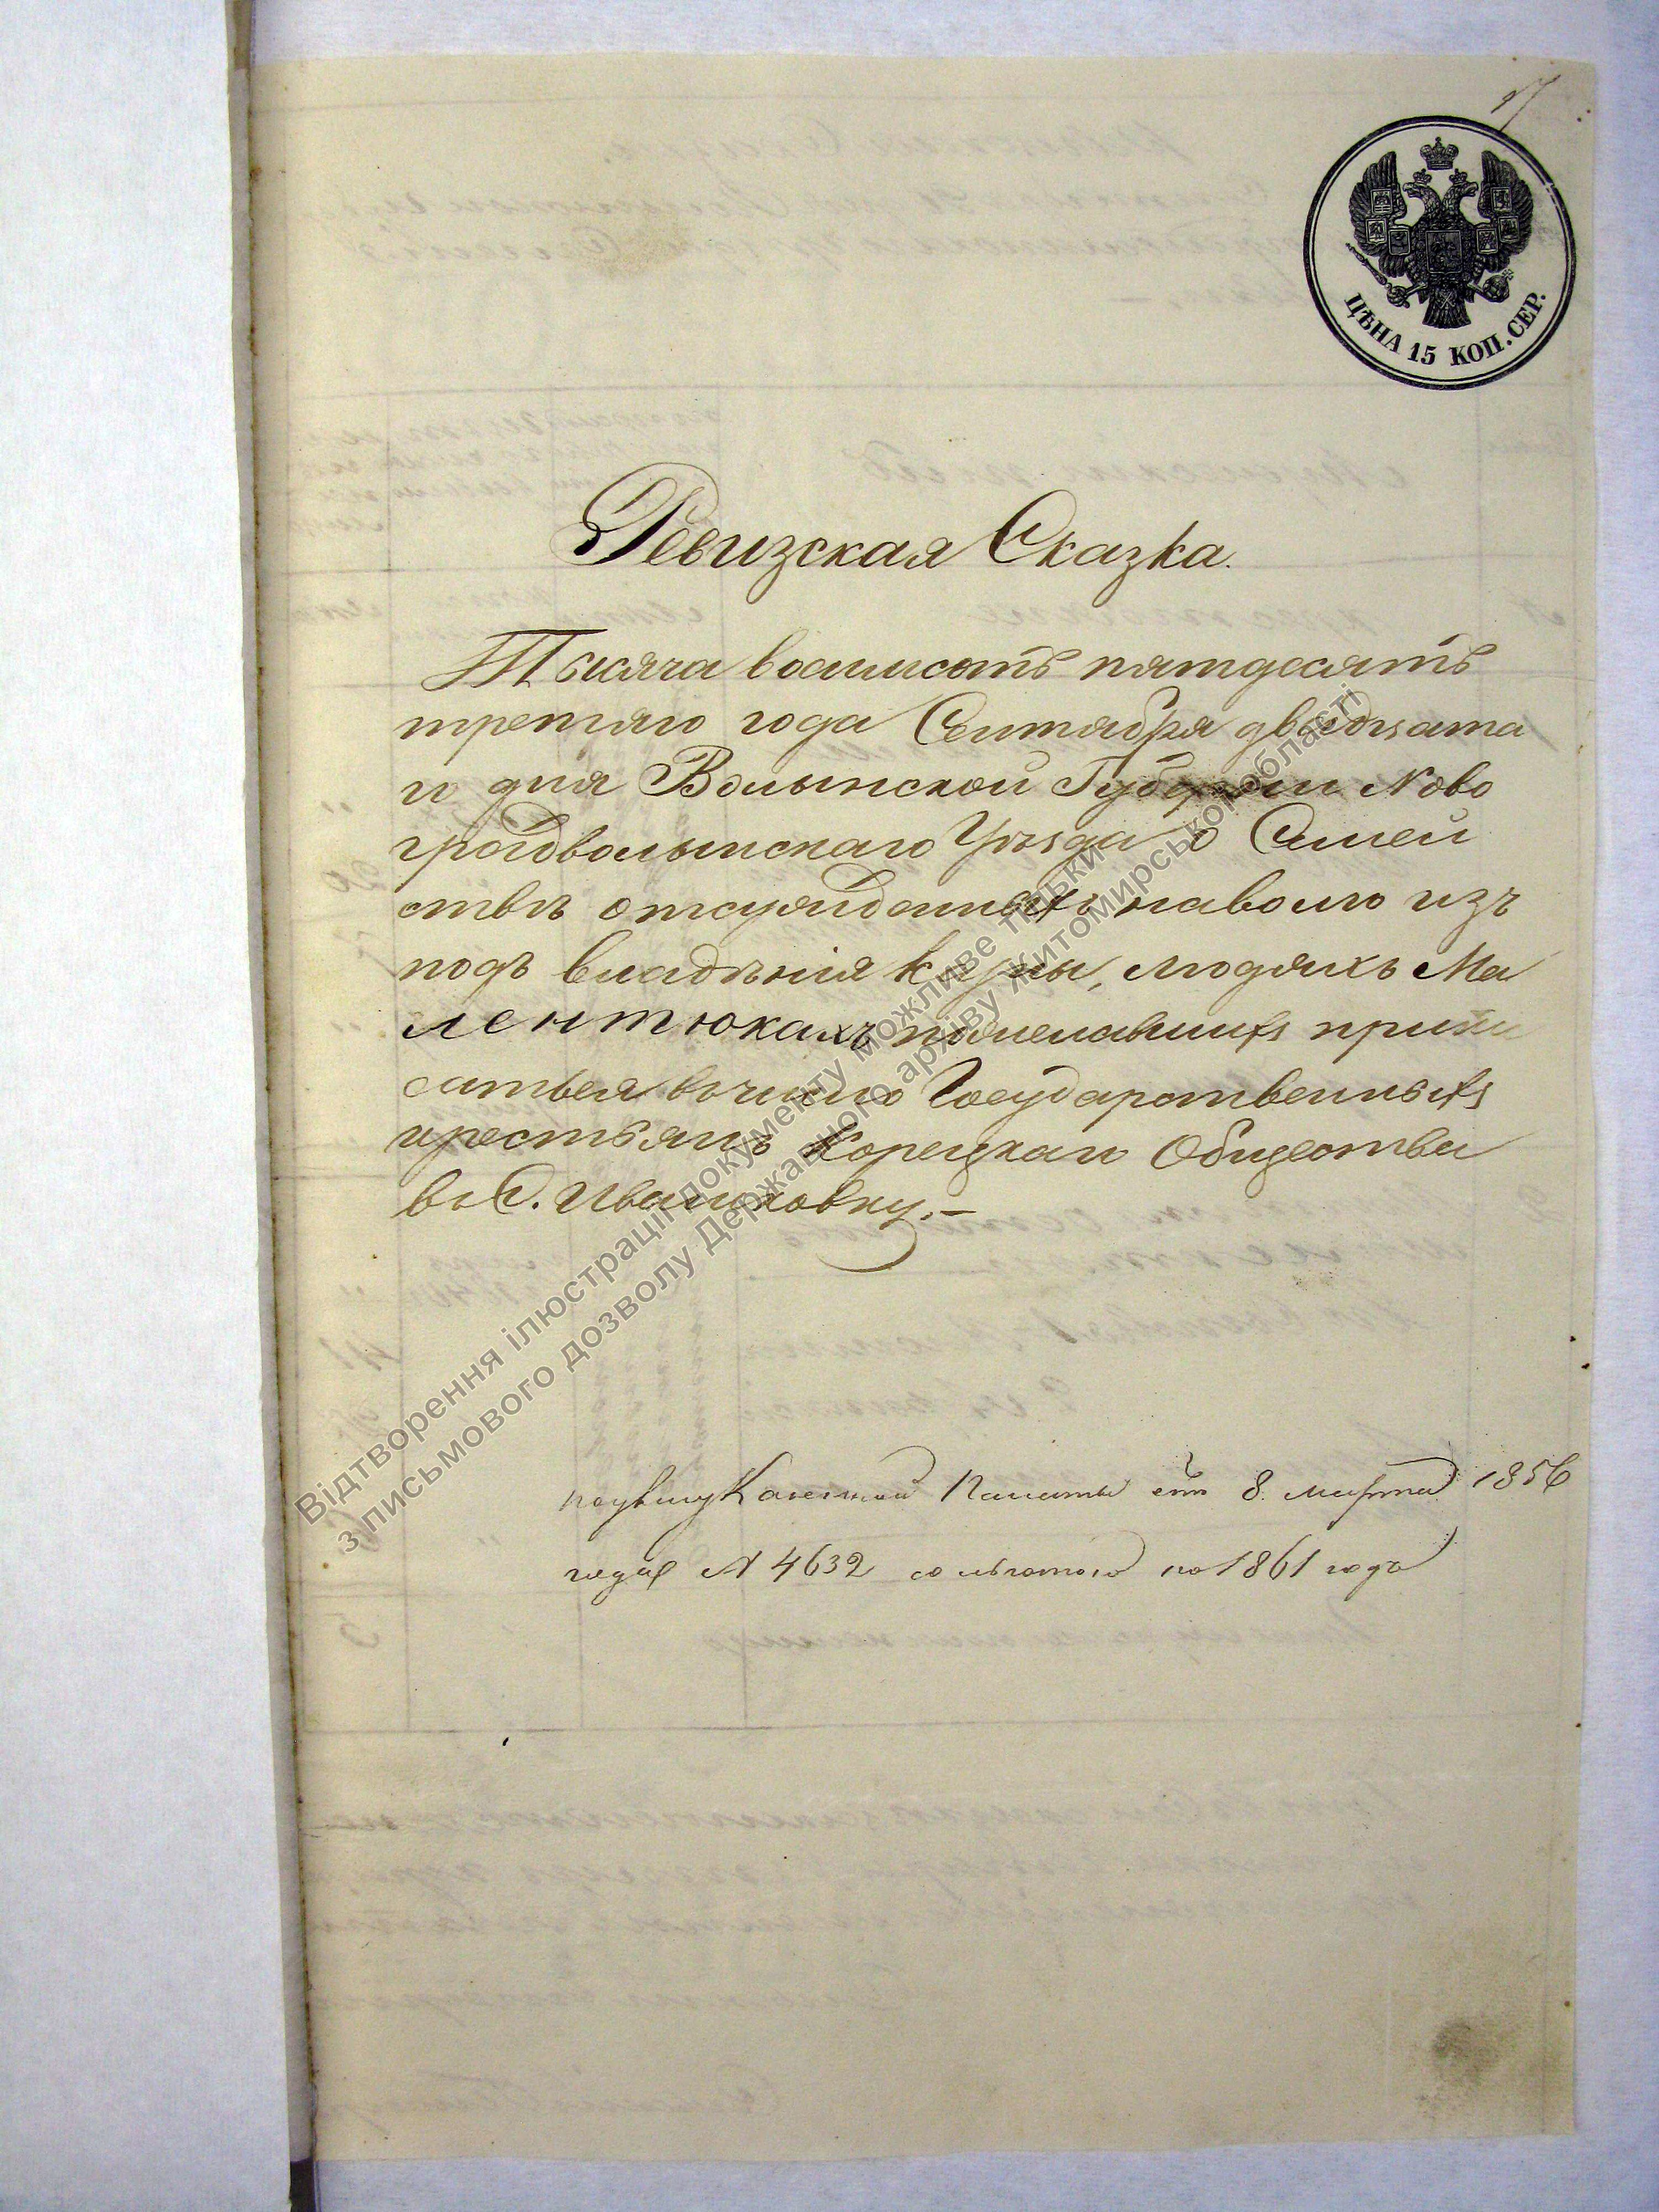 ЦѢНА 15 КОП. СЕР.
Ревизская Сказка.
Тысяча восемьсотъ пятдесятъ
третяго года Сентября двадцата
го дня Волынской Губерніи Ново
градволынскаго Уѣзда о Семей
ствѣ отсужденныхъ наволю изъ
подъ владѣнія людяхъ Ма
лентюкахъ пожелавшихъ припи
саться вчисло Государственныхъ
крестьянъ Корецкаго Общества
въ С. Ивашковку.–
поуказу Казенной Палаты отъ 8. Марта 1856
года № 4632 сольготою по 1861 годъ
Відтворення ілюстрації документу можливе тільки
з письмового дозволу Державного архіву Житомирської області)